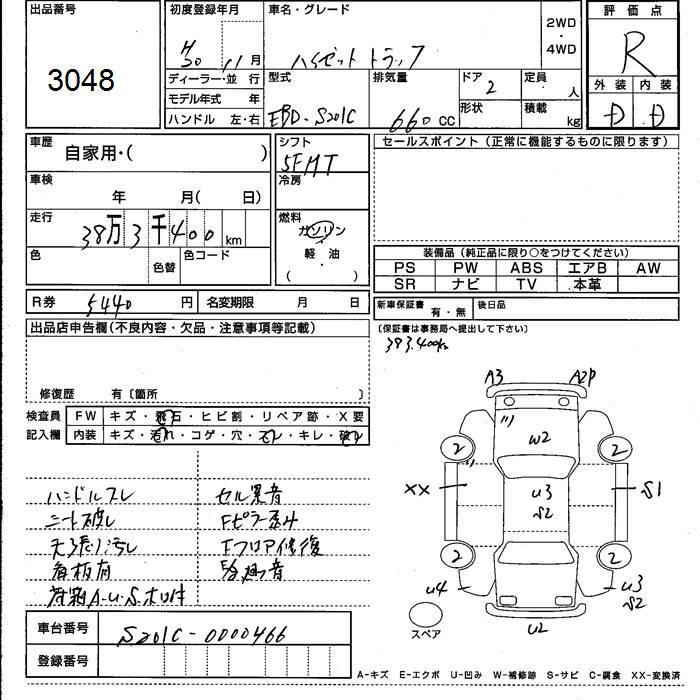 出品番号
3048
初度登録年月
H30. 11月
車名・グレード
ハイゼット トラック
2WD
・
4WD
評価点
R
外装 内装
D D
ディーラー・並行
モデル年式 年
ハンドル 左・右
型式
EBD-S201C
排気量
660 CC
ドア
2
形状
定員
人
積載
kg
車歴
自家用・( )
車検
年 月( 日)
走行
38万3千400km
色
色替
色コード
シフト
5FMT
冷房
燃料
ガソリン
・
軽油
・
( )
セールスポイント(正常に機能するものに限ります)
装備品(純正品に限り○をつけてください)
PS PW ABS エアB AW
SR ナビ TV 本革
R券 5440円
名変期限 月 日
新車保証書
有・無
後日品
(保証書は事務局へ提出して下さい)
383,400km
出品店申告欄(不良内容・欠品・注意事項等記載)
修復歴 有〔箇所 〕
検査員
記入欄
FW キズ・飛石・ヒビ割・リペア跡・X要
内装 キズ・汚れ・コゲ・穴・スレ・キレ・破れ
ハンドルスレ
シート破れ
天張り汚レ
看板有
荷箱A.U.S.ホロ付
セル異音
Fピラー歪み
Fフロア修復
A3 A2P
W2
2 2
XX
U3
S2
S1
2 2
U4
U3
S2
U2
スペア
車台番号
S201C-0000466
登録番号
A-キズ E-エクボ U-凹み W-補修跡 S-サビ C-腐食 XX-変換済